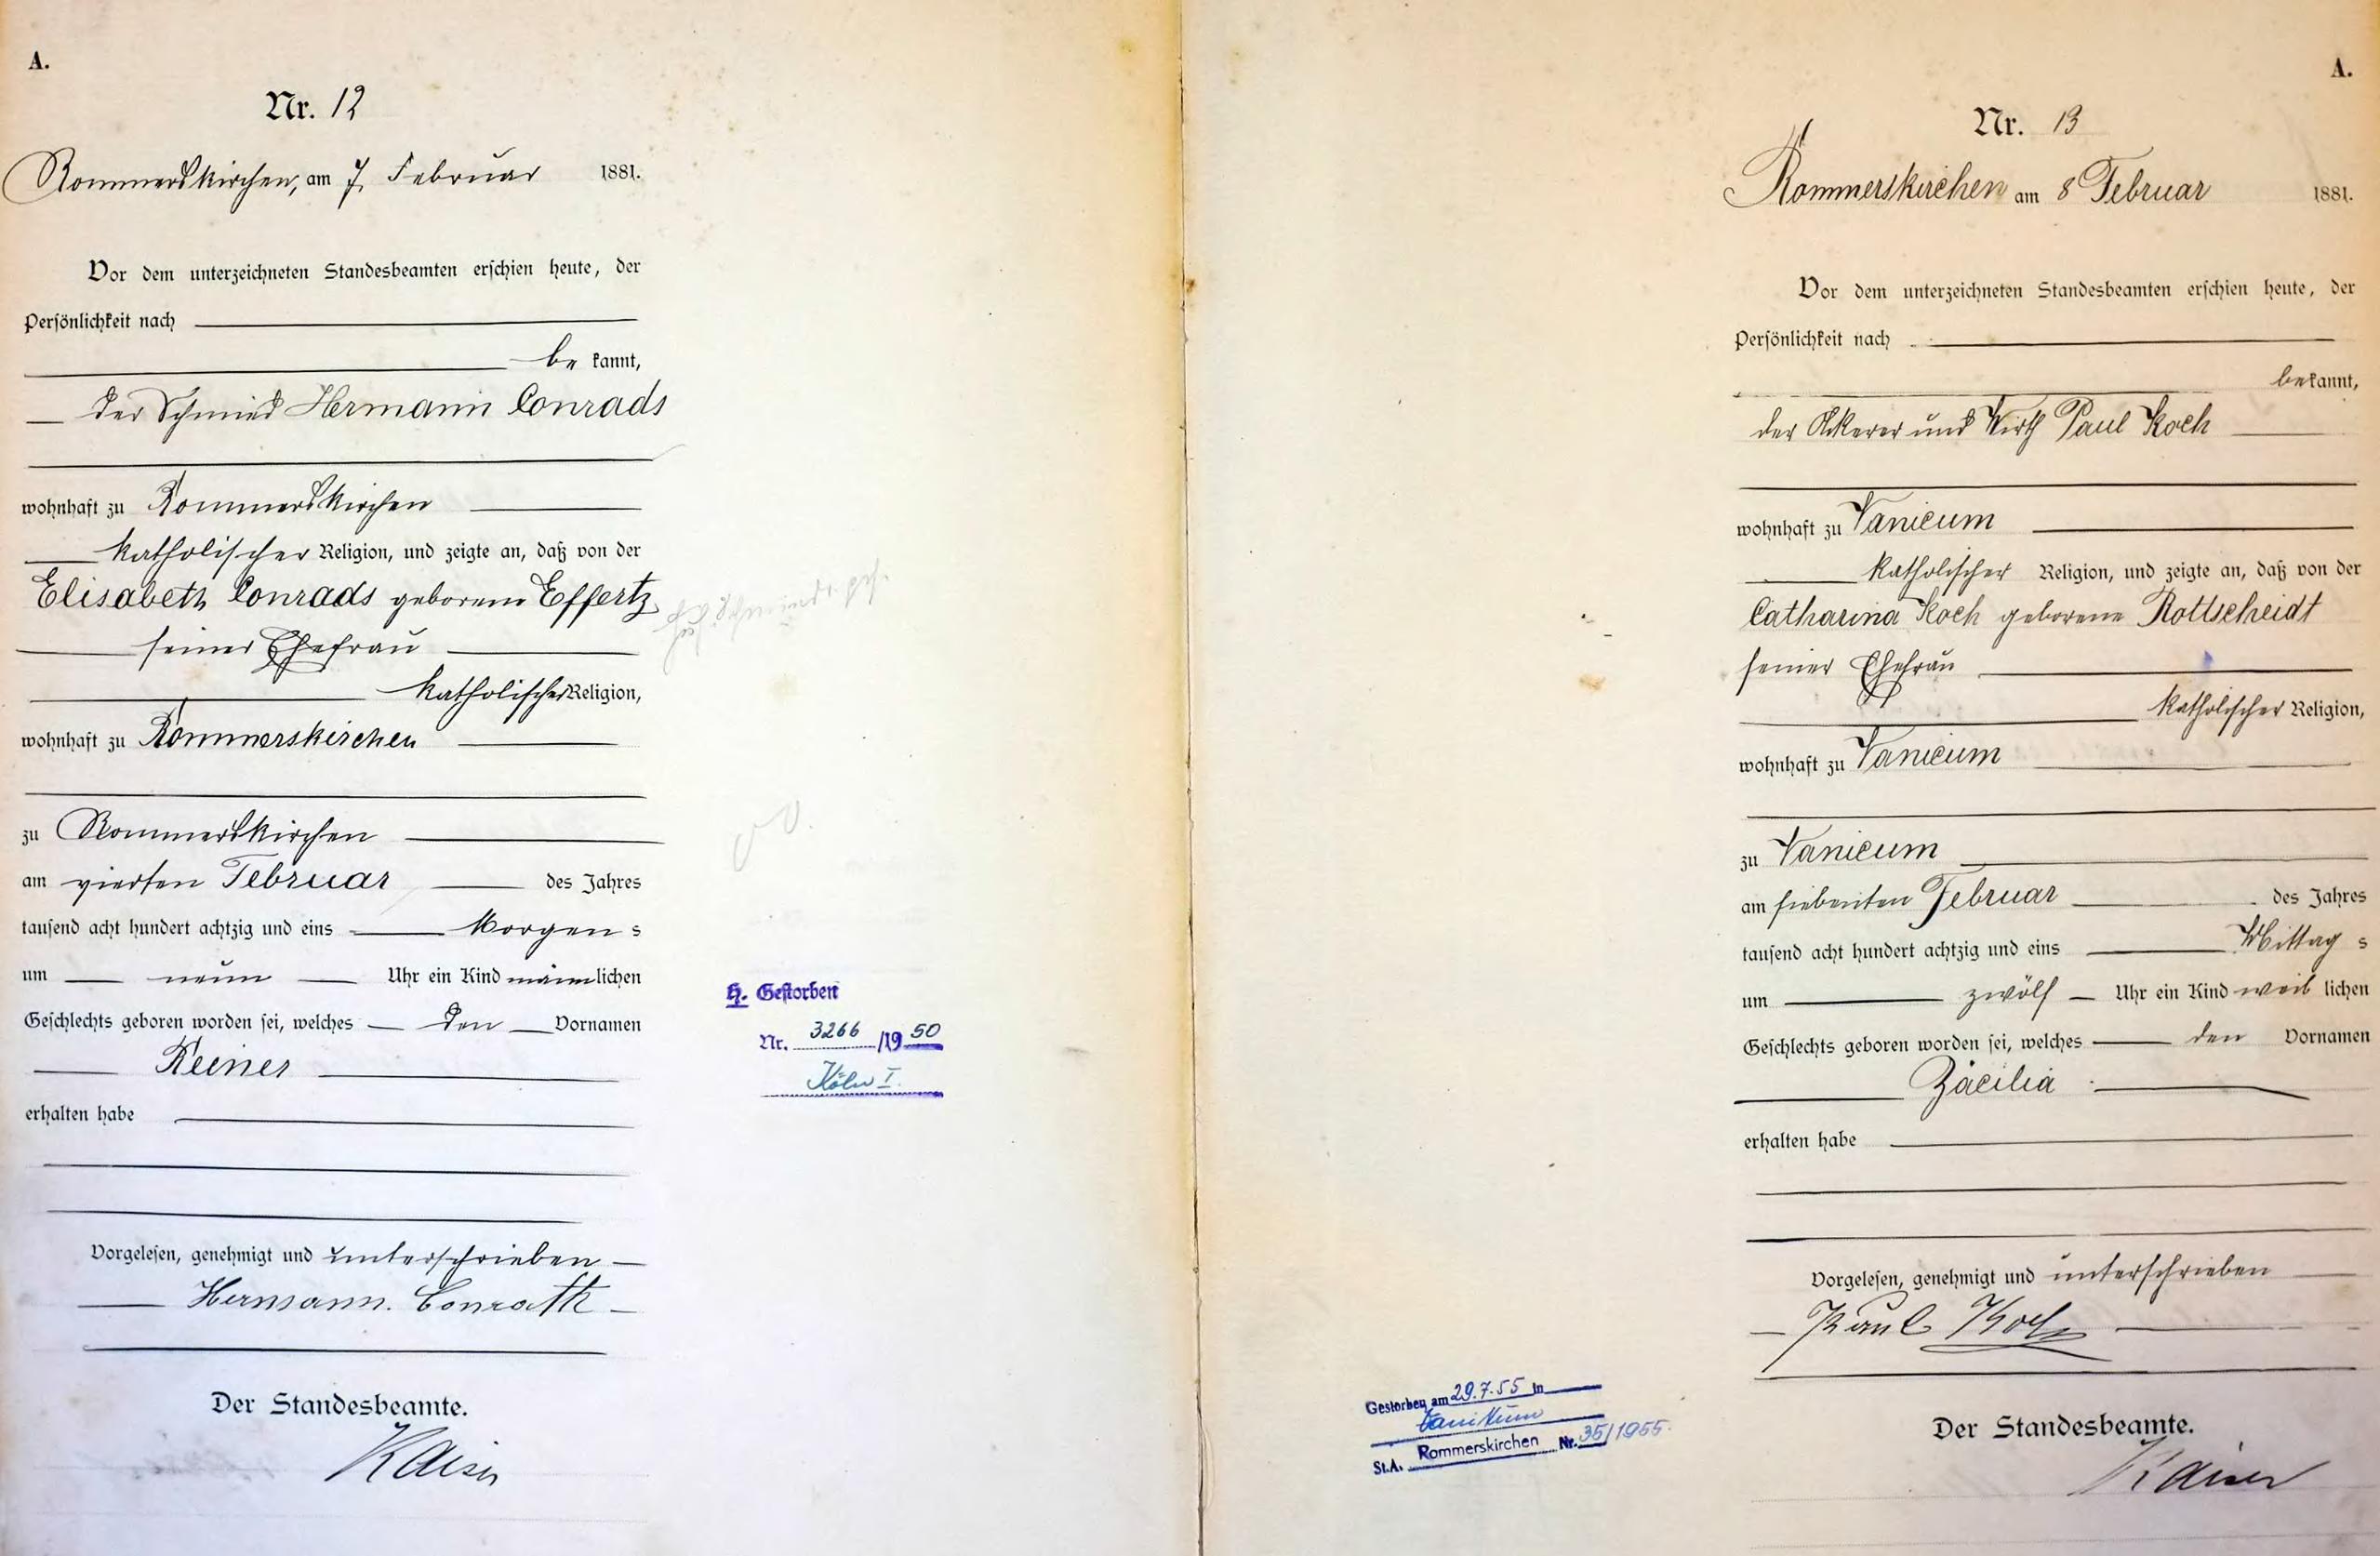 A.
Nr. 12
Rommerskirchen, am 7. Februar 1881.
Vor dem unterzeichneten Standesbeamten erschien heute, der
Persönlichkeit nach
be kannt,
der Schmied Hermann Conrads
wohnhaft zu Rommerskirchen
katholischer Religion, und zeigte an, daß von der
Elisabeth Conrads geborene Effertz
seiner Ehefrau
katholischer Religion,
wohnhaft zu Rommerskirchen
zu Rommerskirchen
am vierten Februar des Jahres
tausend acht hundert achtzig und eins Morgen s
um neun Uhr ein Kind männlichen
Geschlechts geboren worden sei, welches den Vornamen
Reiner
erhalten habe
Vorgelesen, genehmigt und unterschrieben
Hermann. Conrath
Der Standesbeamte.
Kaiser
H. Gestorben
Nr. 3266 /19 50
Köln I.
A.
Nr. 13
Rommerskirchen am 8 Februar 1881.
Vor dem unterzeichneten Standesbeamten erschien heute, der
Persönlichkeit nach
bekannt,
der Ackerer und Wirth Paul Koch
wohnhaft zu Vanicum
katholischer Religion, und zeigte an, daß von der
Catharina Koch geborene Rottscheidt
seiner Ehefrau
katholischer Religion,
wohnhaft zu Vanicum
zu Vanicum
am siebenten Februar des Jahres
tausend acht hundert achtzig und eins Mittag s
um zwölf Uhr ein Kind weib lichen
Geschlechts geboren worden sei, welches den Vornamen
Zäcilia
erhalten habe
Vorgelesen, genehmigt und unterschrieben
Paul Koch
Der Standesbeamte.
Kaiser
Gestorben am 29.7.55 in
Vanikum
St.A. Rommerskirchen Nr. 35/1955.